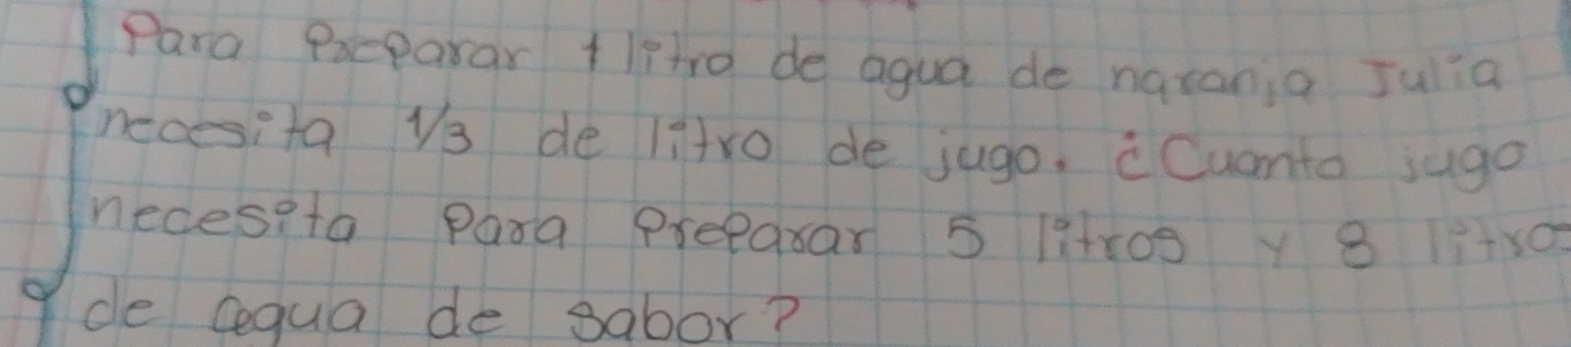 Para preparar 1 litro de agua de naranja Julia
necesita 1/3 de litro de jugo. ¿Cuanto jugo
necesita para preparar 5 litros y 8 litros
de agua de sabor?